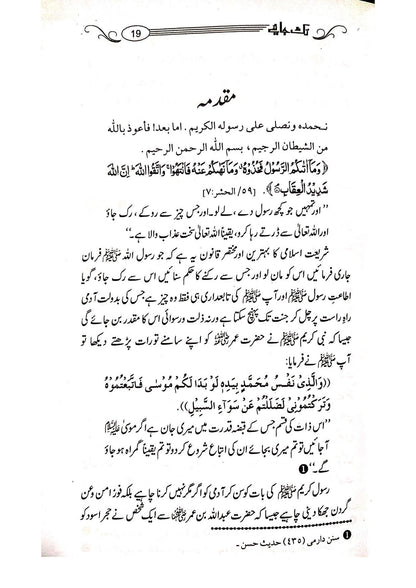 رک جایئے
19
مقدمہ
نحمده ونصلی علی رسوله الکریم . اما بعد! فاعوذ بالله
من الشیطان الرجیم ، بسم الله الرحمن الرحیم .
﴿وَمَآ اٰتٰىكُمُ الرَّسُوْلُ فَخُذُوْهُ ۚ وَمَا نَهٰىكُمْ عَنْهُ فَانْتَهُوْا ۚ وَاتَّقُوا اللّٰهَ ؕ اِنَّ اللّٰهَ
شَدِيْدُ الْعِقَابِ﴾ . [٥٩/الحشر:٧]
’’اور تمہیں جو کچھ رسول دے ، لے لو۔ اور جس چیز سے روکے ، رک جاؤ
اور اللہ تعالیٰ سے ڈرتے رہا کرو، یقیناً اللہ تعالیٰ سخت عذاب والا ہے۔‘‘
شریعت اسلامی کا بہترین اور مختصر قانون یہ ہے کہ جو رسول اللہ ﷺ فرمان
جاری فرمائیں اس کو مان لو اور جس سے رکنے کا حکم سنائیں اس سے رک جاؤ، گویا
اطاعت رسول ﷺ اور آپ ﷺ کی تابعداری ہی فقط وہ چیز ہے جس کی بدولت آدمی
راہ راست پر چل کر جنت تک پہنچ سکتا ہے ورنہ ذلت ورسوائی اس کا مقدر بن جائے گی
جیسا کہ نبی کریم ﷺ نے حضرت عمر رضی اللہ عنہ کو اپنے سامنے تورات پڑھتے دیکھا تو
آپ ﷺ نے فرمایا:
((وَالَّذِيْ نَفْسُ مُحَمَّدٍ بِيَدِهِ لَوْ بَدَا لَكُمْ مُوْسٰى فَاتَّبَعْتُمُوْهُ
وَتَرَكْتُمُوْنِيْ لَضَلَلْتُمْ عَنْ سَوَآءِ السَّبِيْلِ)).
’’اس ذات کی قسم جس کے قبضہ قدرت میں میری جان ہے اگر موسیٰ علیہ السلام
آ جائیں تو تم میری بجائے ان کی اتباع شروع کر دو تو تم یقیناً گمراہ ہو جاؤ
گے۔‘‘ ❶
رسول کریم ﷺ کی بات کو سن کر آدمی کو اگر مگر نہیں کرنا چاہیے بلکہ فوز امن وعن
گردن جھکا دینی چاہیے جیسا کہ حضرت عبداللہ بن عمر رضی اللہ عنہ سے ایک شخص نے حجر اسود کو
❶ سنن دارمی (٤٣٥) حدیث حسن ۔